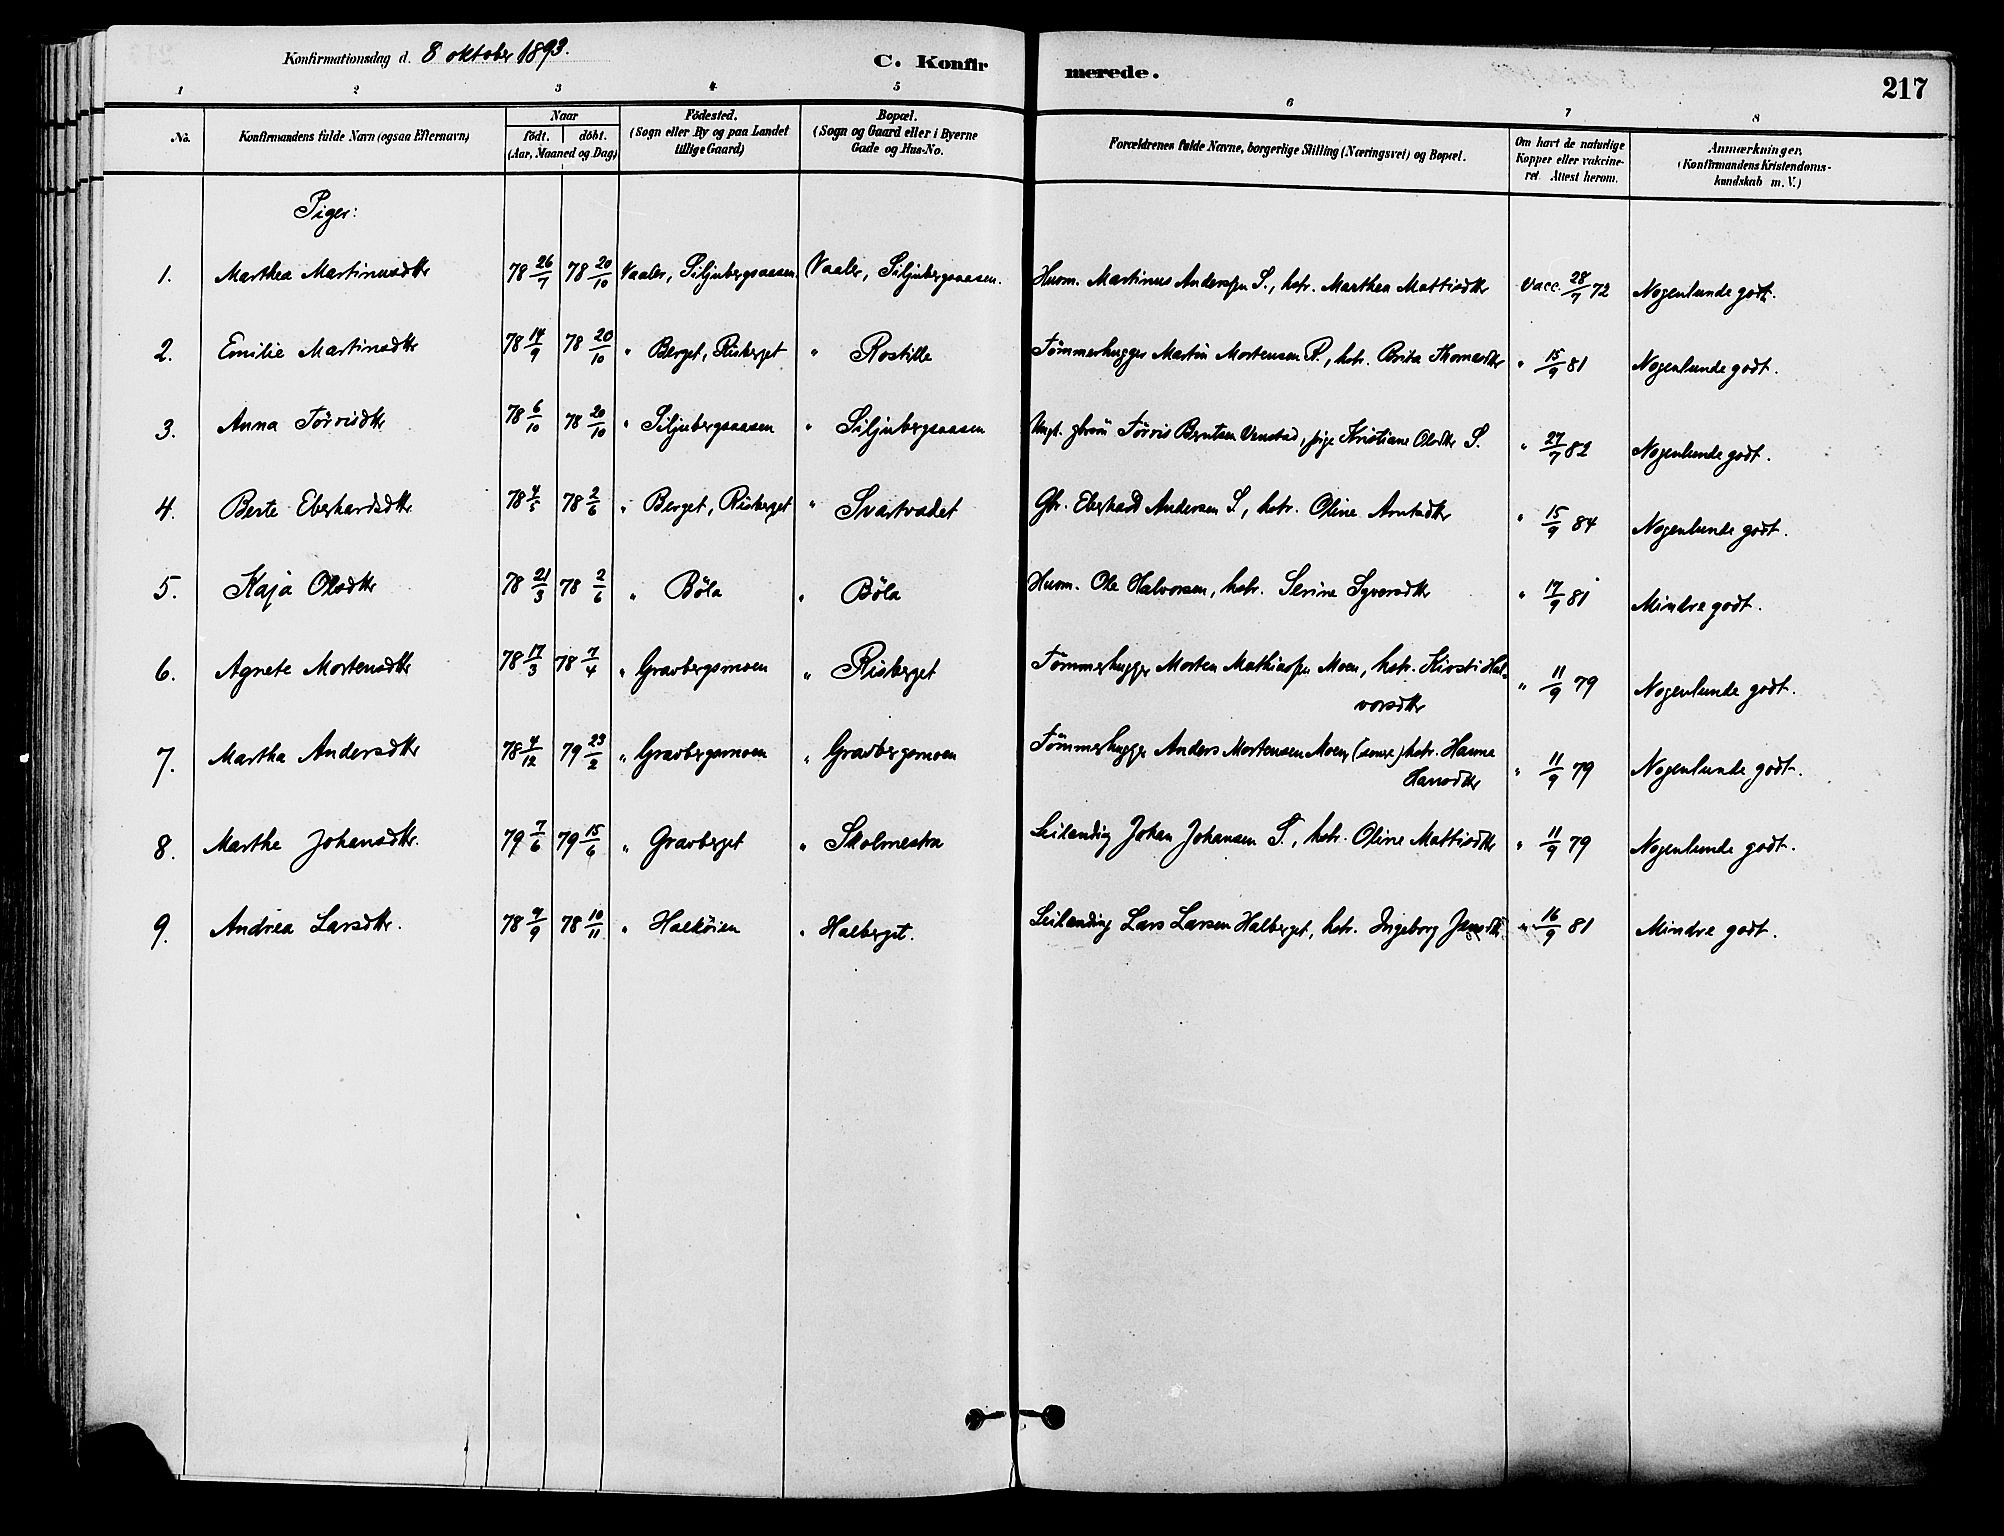 Konfirmationsdag d. 8 oktober 1893.
C. Konfirmerede.
217
1 2 3 4 5 6 7 8
No. Konfirmandens fulde Navn (ogsaa Efternavn) Naar födt. döbt. (Aar, Maaned og Dag) Födested. (Sogn eller By og paa Landet tillige Gaard) Bopæl. (Sogn og Gaard eller i Byerne Gade og Hus-No. Forældrenes fulde Navne, borgerlige Stilling (Næringsvei) og Bopæl. Om havt de naturlige Kopper eller vakcineret Attest herom. Anmærkninger. (Konfirmandens Kristendomskundskab m. V.)
Piger:
1. Marthea Martinusdtr 78 26/7 78 20/10 Vaaler, Siljubergsaasen Vaaler, Siljubergsaasen. Husm. Martinus Anderssen S., hstr. Marthea Mattisdtr Vacc. 28/7 72 Nogenlunde godt.
2. Emilie Martinsdtr 78 14/9 78 20/10 " Berget, Risberget " Rostille Tømmerhugger Martin Mortensen R., hstr. Berita Thomasdtr " 15/9 81 Nogenlunde godt.
3. Anna Tørrisdtr 78 6/10 78 20/10 " Siljubergsaasen " Siljubergsaasen Ungk. Tørris Berntsen Venstad, pige Kristiane Olsdtr S. " 27/7 82 Nogenlunde godt.
4. Berte Eberhardsdtr 78 4/5 78 2/6 " Berget, Risberget " Svartvadet Gbr. Eberhard Andersen S., hstr. Oline Arntsdtr " 15/9 84 Nogenlunde godt.
5. Kaja Olsdtr 78 21/3 78 2/6 " Böla " Böla Husm. Ole Halvorsen, hstr. Serine Syversdtr " 17/9 81 Mindre godt.
6. Agnete Mortensdtr 78 17/3 78 7/4 " Gravbergsmoen " Risberget Tømmerhugger Morten Mathiassen Moen, hstr. Kirsti Hal-
vorsdtr " 11/9 79 Nogenlunde godt.
7. Martha Andersdtr 78 4/12 79 23/2 " Gravbergsmoen " Gravbergsmoen Tømmerhugger Anders Mortensen Moen, hstr. Hanna
Hansdtr " 11/9 79 Nogenlunde godt.
8. Marthe Johansdtr. 79 7/6 79 15/6 " Gravberget " Skolmestra Leilænding Johan Johansen S., hstr. Oline Mattisdtr " 11/9 79 Nogenlunde godt.
9. Andrea Larsdtr. 78 9/9 78 10/11 " Halköien " Halberget. Leilænding Lars Larsen Halberget, hstr. Ingeborg Jensdtr " 16/9 81 Mindre godt.